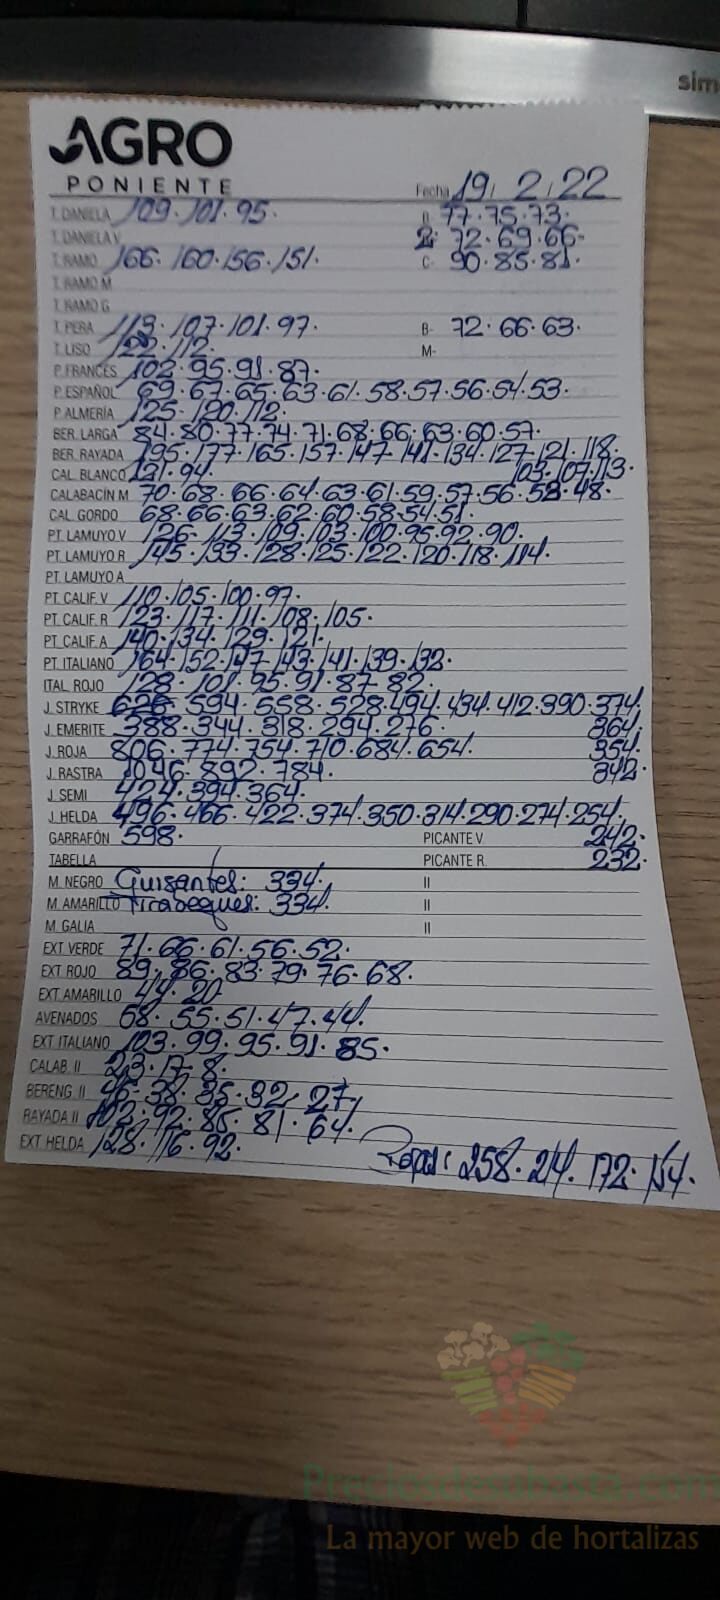 simo
AGRO
PONIENTE
Fecha 19/2/22
T. DANIELA 109·101·95· B 77·75·73·
T. DANELA V 2· 72·69·66-
T. RAMO 166·160·156·151· C- 90·85·81·
T. RAMO M
T. RAMO G
T. PERA 113·107·101·97· B- 72·66·63·
T. LISO 122·112· M-
P. FRANCÉS 102·95·91·87·
P. ESPAÑOL 69·67·65·63·61·58·57·56·54·53·
P. ALMERÍA 125·120·112·
BER. LARGA 84·80·77·74·71·68·66·63·60·57·
BER. RAYADA 195·177·165·157·147·141·134·127·121·118·
CAL. BLANCO 121·94· 103·107·113·
CALABACÍN M 70·68·66·64·63·61·59·57·56·53·48·
CAL. GORDO 68·66·63·62·60·58·54·51·
PT. LAMUYO V 126·113·109·103·100·95·92·90·
PT. LAMUYO R 145·133·128·125·122·120·118·114·
PT. LAMUYO A
PT. CALIF. V 110·105·100·97·
PT. CALIF. R 123·117·111·108·105·
PT. CALIF. A 140·134·129·121·
PT. ITALIANO 164·152·147·143·141·139·132·
ITAL. ROJO 128·101·95·91·87·82·
J. STRYKE 626·594·558·528·494·434·412·390·374·
J. EMERITE 388·344·318·294·276· 364·
J. ROJA 806·774·754·710·684·654· 354·
J. RASTRA 1046·892·784· 342·
J. SEMI 424·394·364·
J. HELDA 496·466·422·374·350·314·290·274·254·
GARRAFÓN 598· PICANTE V 242·
TABELLA PICANTE R. 232·
M. NEGRO Guisantes: 334· II
M. AMARILLO Tirabeques: 334· II
M. GALIA II
EXT. VERDE 71·66·61·56·52·
EXT. ROJO 89·86·83·79·76·68·
EXT. AMARILLO 44·20·
AVENADOS 68·55·51·47·44·
EXT. ITALIANO 103·99·95·91·85·
CALAB. II 23·17·8·
BERENG. II 46·38·35·32·27·
RAYADA II 102·92·85·81·64·
EXT. HELDA 128·116·92· 258·214·172·154·
Preciosdesubasta.com
La mayor web de hortalizas